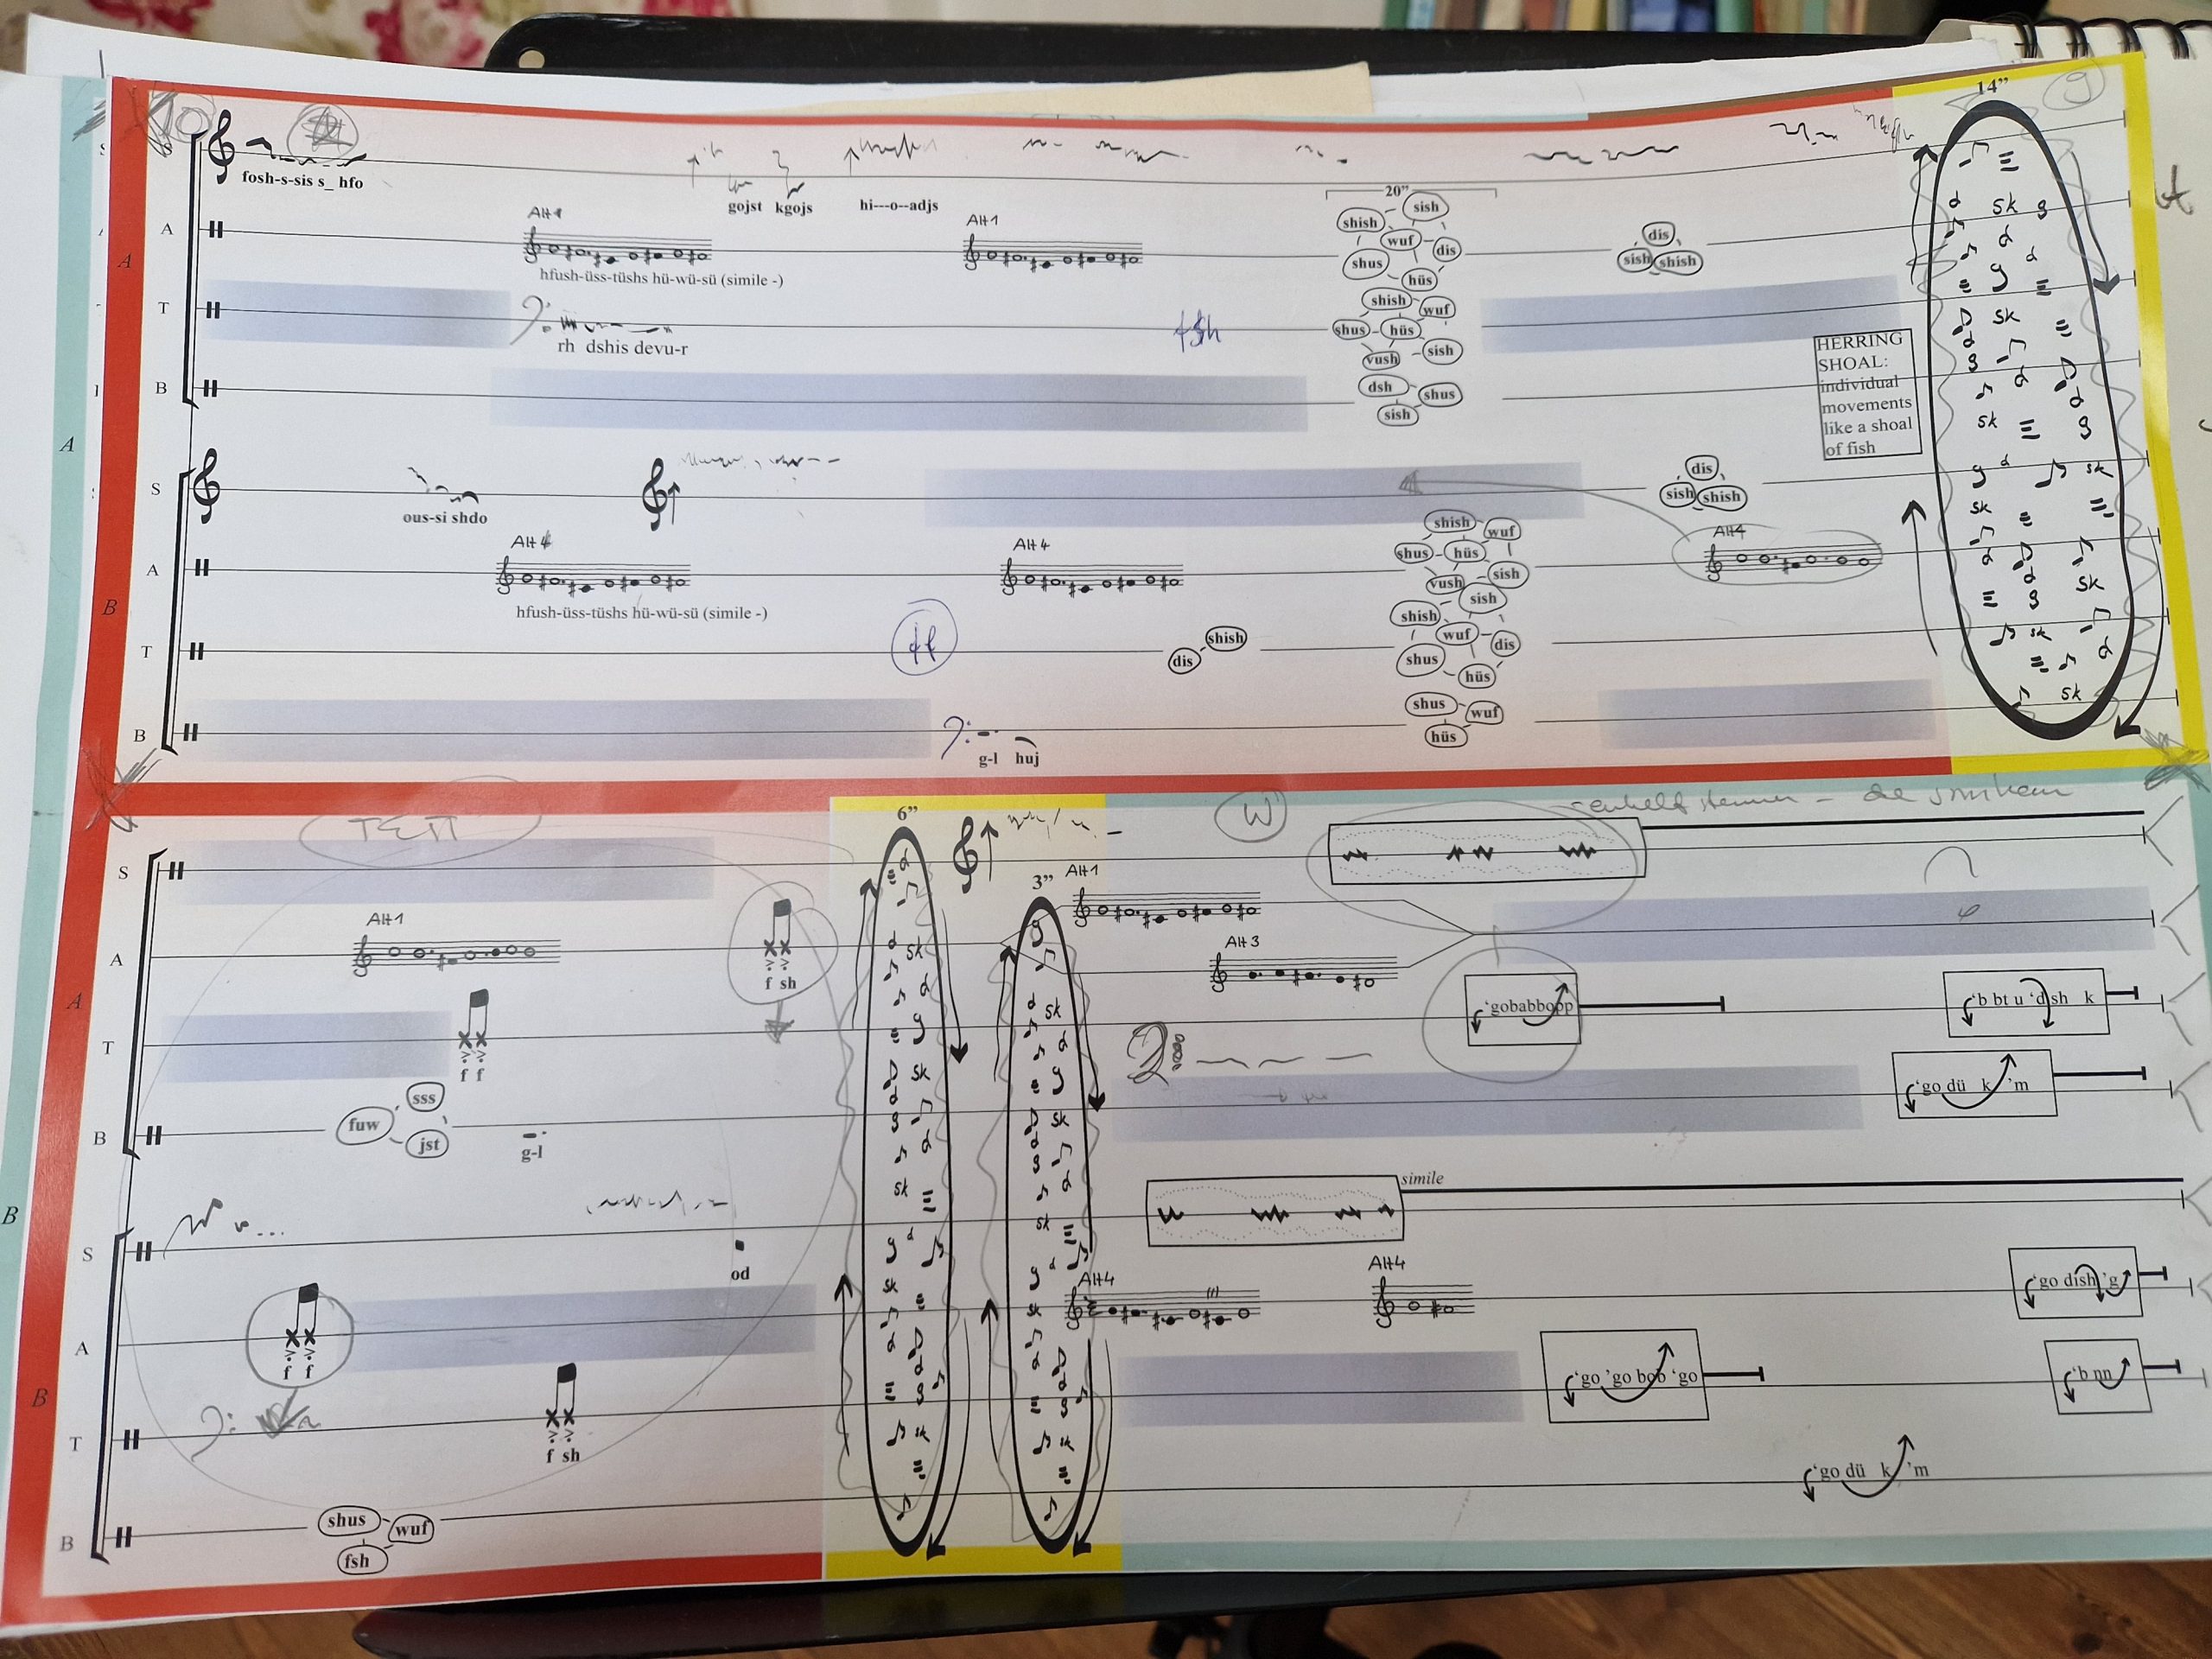 14”
S
fosh-s-sis s_ hfo
gojst kgojs
hi---o--adjs
A
A
Alt 1
hfush-üss-tüshs hü-wü-sü (simile -)
Alt 1
20”
shish
sish
wuf
dis
shus
hüs
dis
sish
shish
T
rh dshis devu-r
fsh
shish
wuf
shus
hüs
vush
sish
B
dsh
shus
sish
HERRING
SHOAL:
individual
movements
like a shoal
of fish
B
S
ous-si shdo
dis
sish
shish
A
Alt 4
hfush-üss-tüshs hü-wü-sü (simile -)
Alt 4
shish
wuf
shus
hüs
vush
sish
Alt4
T
ff
dis
shish
sish
shish
wuf
dis
shus
hüs
B
g-l huj
shus
wuf
hüs
A
B
TETT
6”
3”
W
A
S
A
Alt 1
f sh
Alt 1
Alt 3
T
f f
‘gobabbopp
‘b bt u ‘dish k
B
fuw
sss
jst
g-l
‘go dü k ’m
B
S
od
simile
A
f f
Alt4
Alt4
‘go dish ‘g
T
f sh
‘go ‘go bob ‘go
‘b nn
B
shus
wuf
fsh
‘go dü k ’m